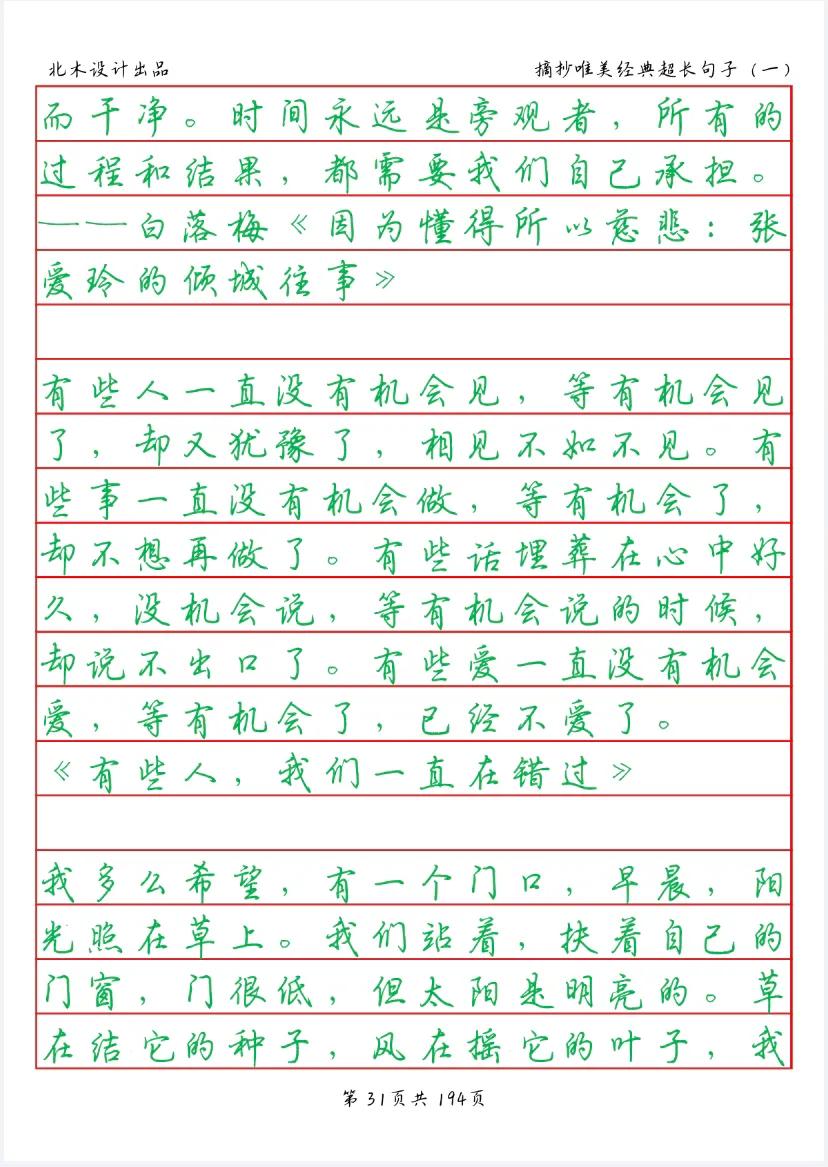 北木设计出品
摘抄唯美经典超长句子（一）
而干净。时间永远是旁观者，所有的
过程和结果，都需要我们自己承担。
——白落梅《因为懂得所以慈悲：张
爱玲的倾城往事》
有些人一直没有机会见，等有机会见
了，却又犹豫了，相见不如不见。有
些事一直没有机会做，等有机会了，
却不想再做了。有些话埋葬在心中好
久，没机会说，等有机会说的时候，
却说不出口了。有些爱一直没有机会
爱，等有机会了，已经不爱了。
《有些人，我们一直在错过》
我多么希望，有一个门口，早晨，阳
光照在草上。我们站着，扶着自己的
门窗，门很低，但太阳是明亮的。草
在结它的种子，风在摇它的叶子，我
第31页共194页